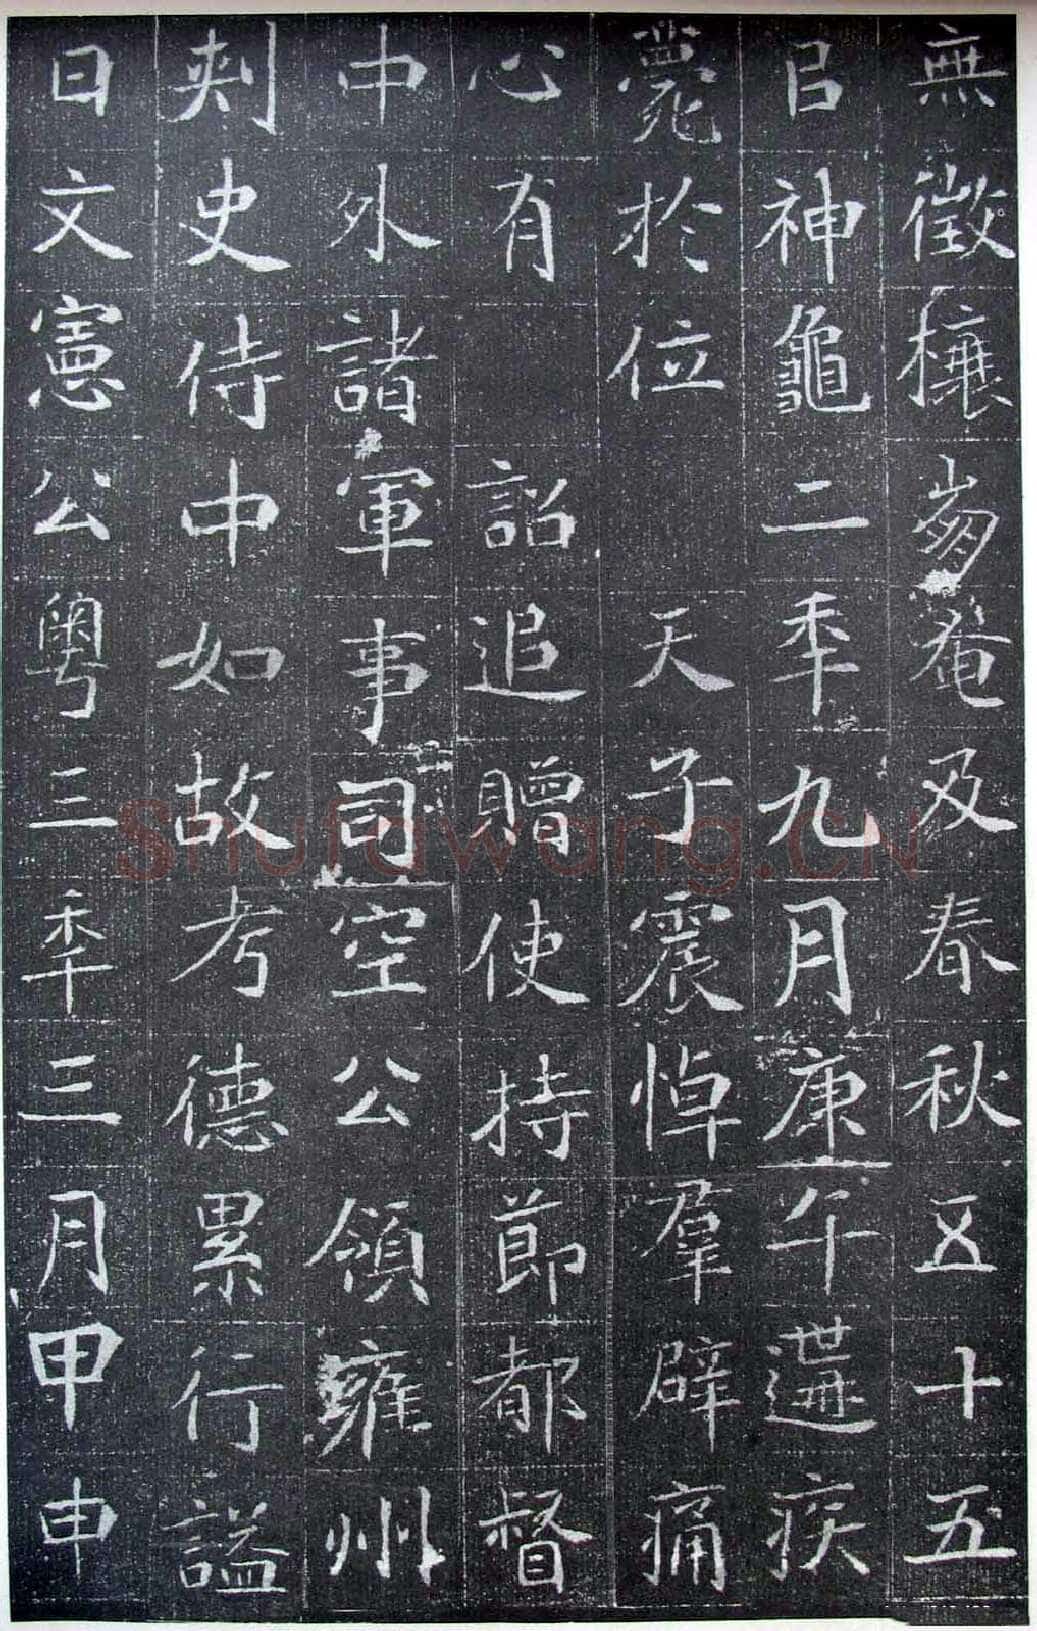 無徵穰歲奄及春秋五十五
㠯神龜二秊九月庚午遘疾
薨於位天子震悼羣辟痛
心有詔追贈使持節都督
中外諸軍事司空公領雍州
刾史侍中如故考德累行謚
曰文憲公粵三秊三月甲申
Shufawang.CN